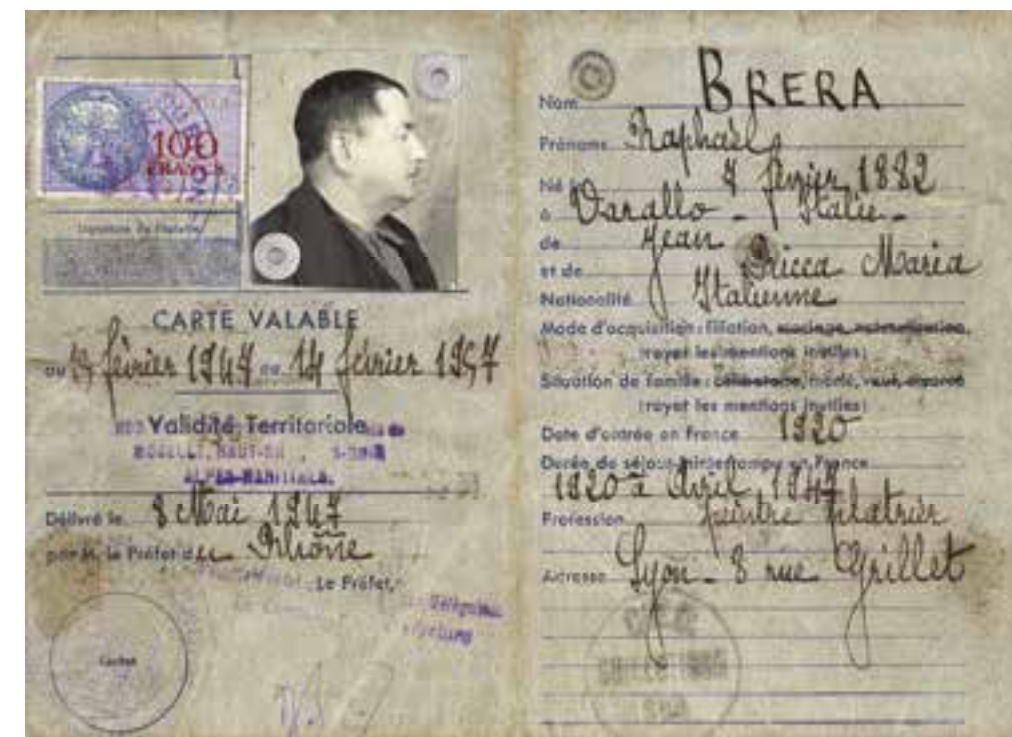 100
FRANCS
Signature du Titulaire,
CARTE VALABLE
février 1947 au 14 février 1957
Validité Territoriale
ALPES-MARITIMES.
Délivré le 8 Mai 1947
par M. le Préfet du Rhône
Le Préfet,
Cachet
Nom BRERA
Prénoms Raphaël
Né le 7 février 1882
à Varallo - Italie -
de Jean
et de Maria
Nationalité Italienne
Mode d'acquisition : filiation, mariage, naturalisation,
(rayer les mentions inutiles)
Situation de famille : célibataire, marié, veuf, divorcé
(rayer les mentions inutiles)
Date d'entrée en France 1920
Durée de séjour ininterrompu en France
1920 à Avril 1947
Profession peintre plâtrier
Adresse Lyon - 8 rue Grillet